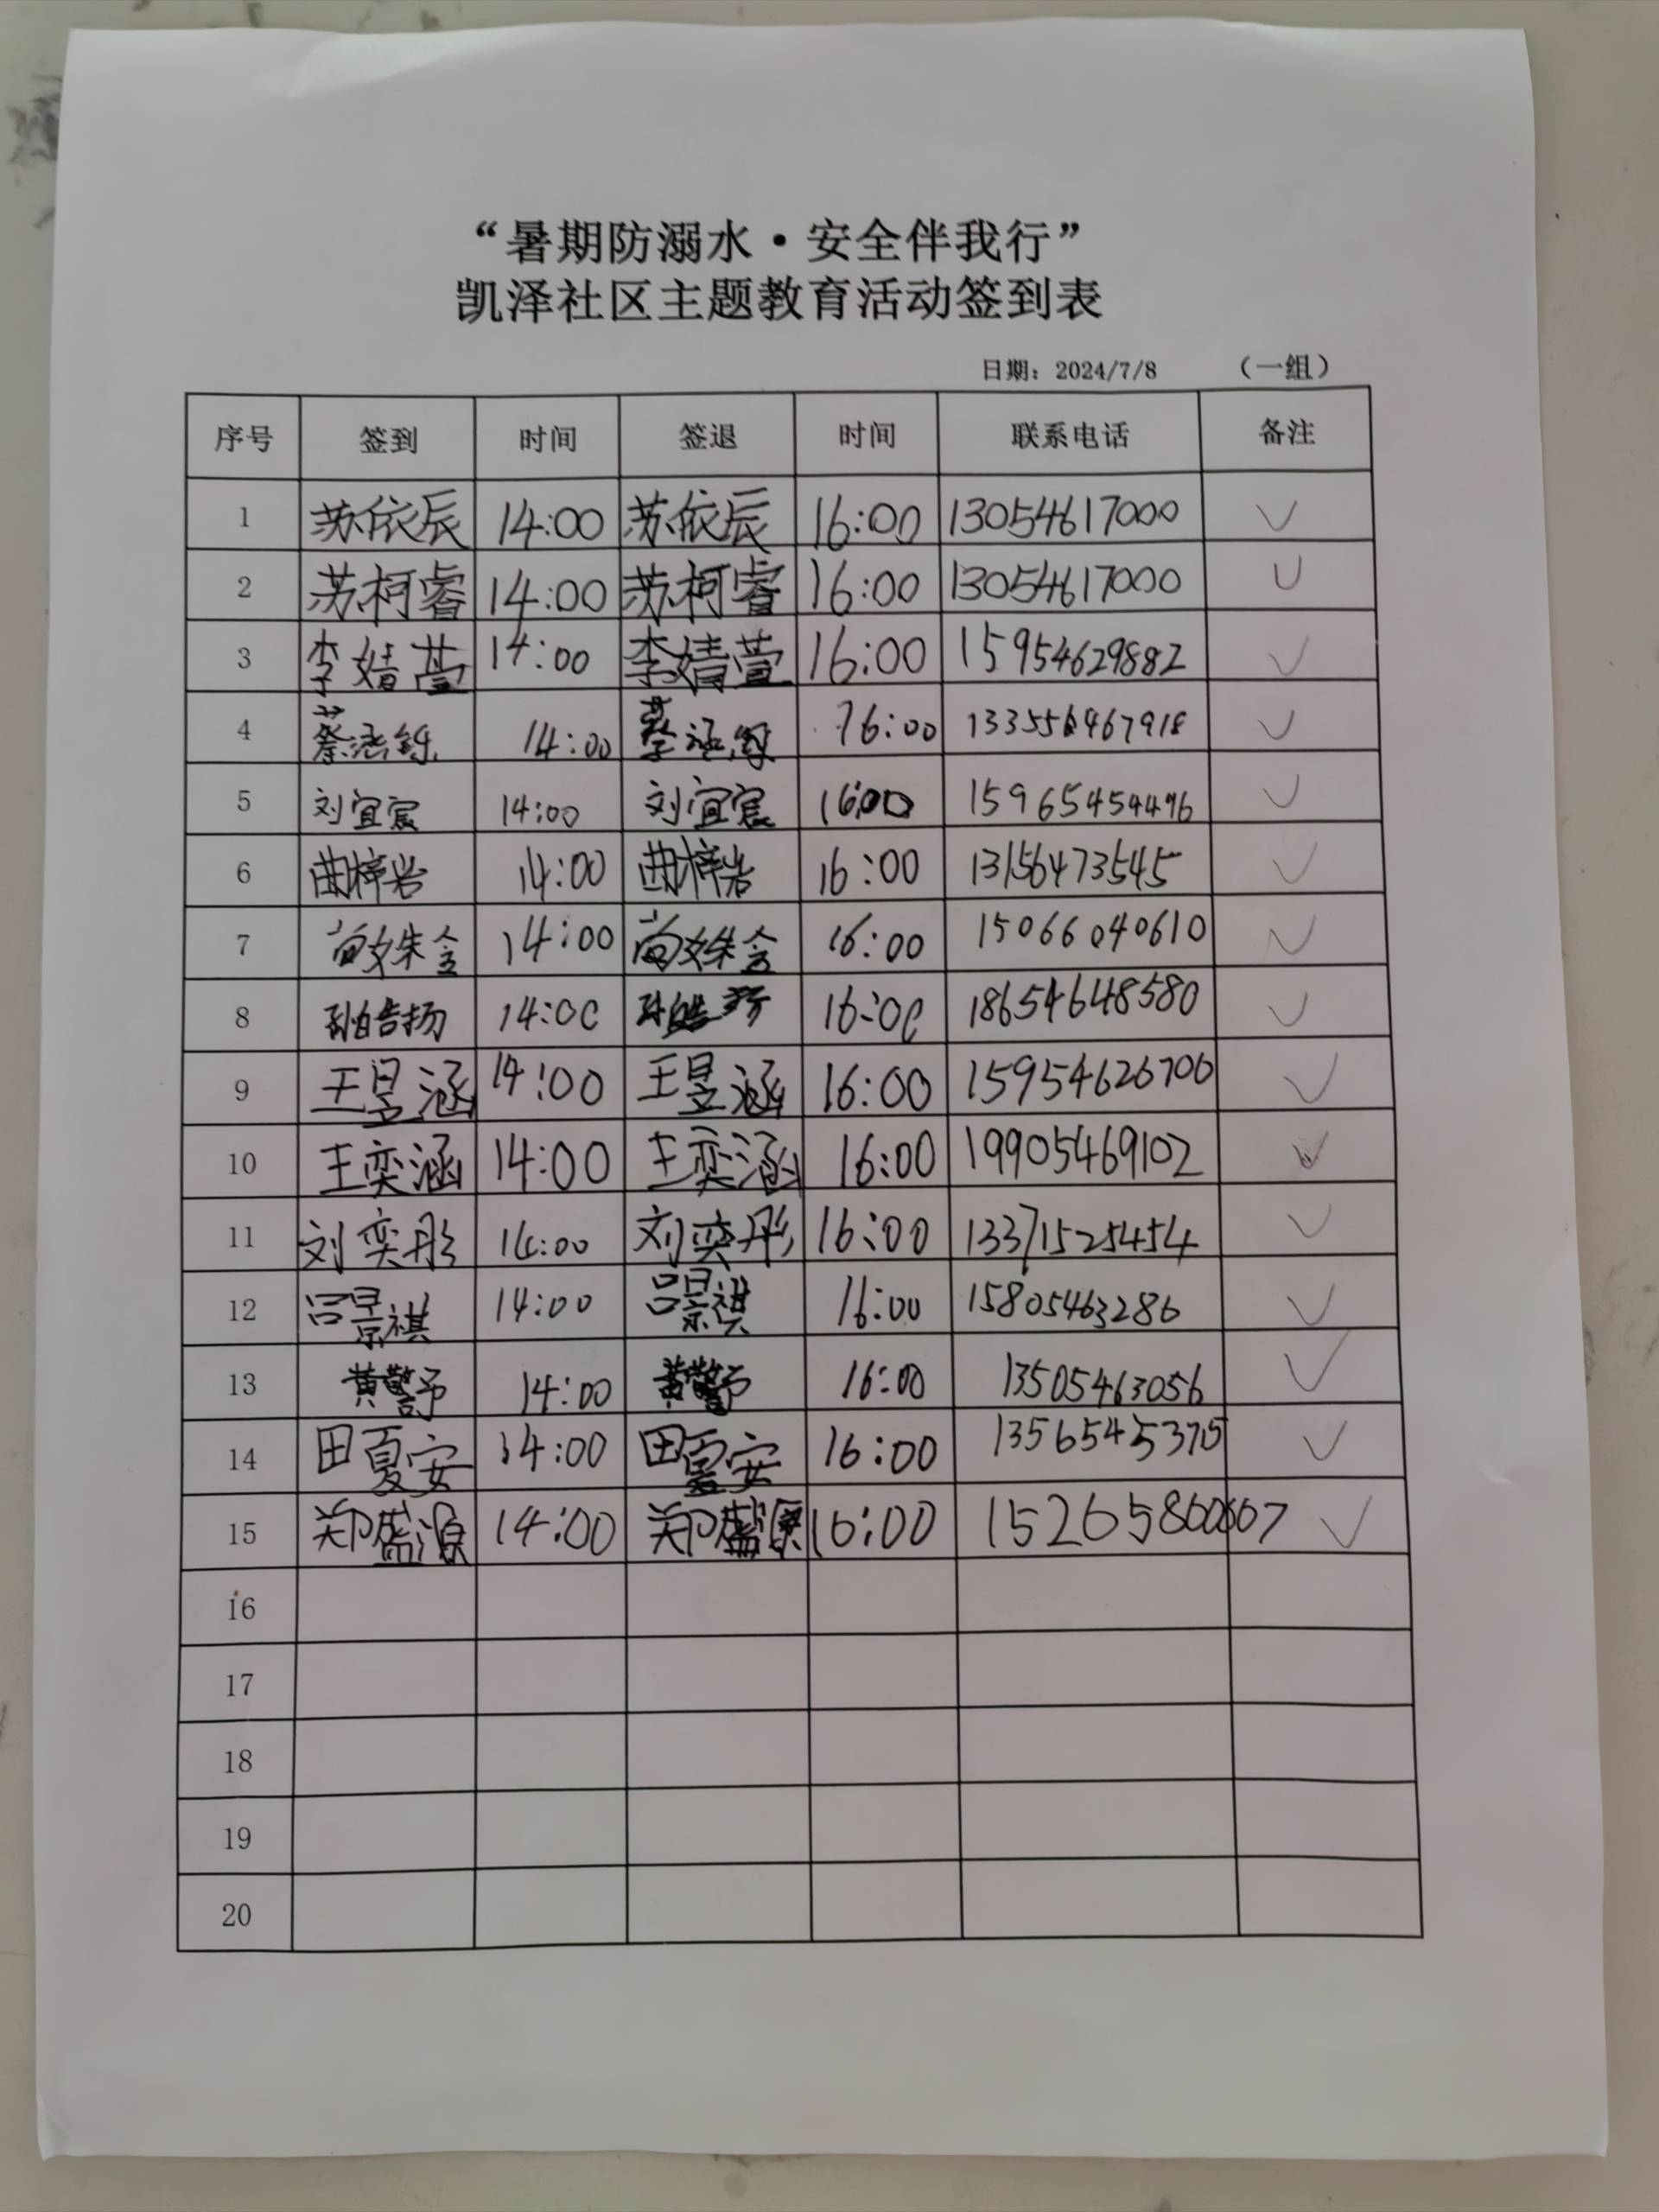 “暑期防溺水·安全伴我行”
凯泽社区主题教育活动签到表
日期：2024/7/8 （一组）
序号 签到 时间 签退 时间 联系电话 备注
1 苏依辰 14:00 苏依辰 16:00 13054617000 √
2 苏柯睿 14:00 苏柯睿 16:00 13054617000 √
3 李婧萱 14:00 李婧萱 16:00 15954629882 √
4 蔡涵 14:00 蔡涵 16:00 133556467918 √
5 刘宜宸 14:00 刘宜宸 16:00 15965454496 √
6 曲梓岩 14:00 曲梓岩 16:00 13156473545 √
7 14:00 16:00 15066040610 √
8 孙皓扬 14:00 孙皓扬 16:00 18654648580 √
9 王昱涵 14:00 王昱涵 16:00 15954626706 √
10 王奕涵 14:00 王奕涵 16:00 19905469102 √
11 刘奕彤 14:00 刘奕彤 16:00 13371525454 √
12 吕景祺 14:00 吕景祺 16:00 15805463286 √
13 黄警予 14:00 黄警予 16:00 13505463056 √
14 田夏安 14:00 田夏安 16:00 13565455375 √
15 郑盛源 14:00 郑盛源 16:00 √
16
17
18
19
20